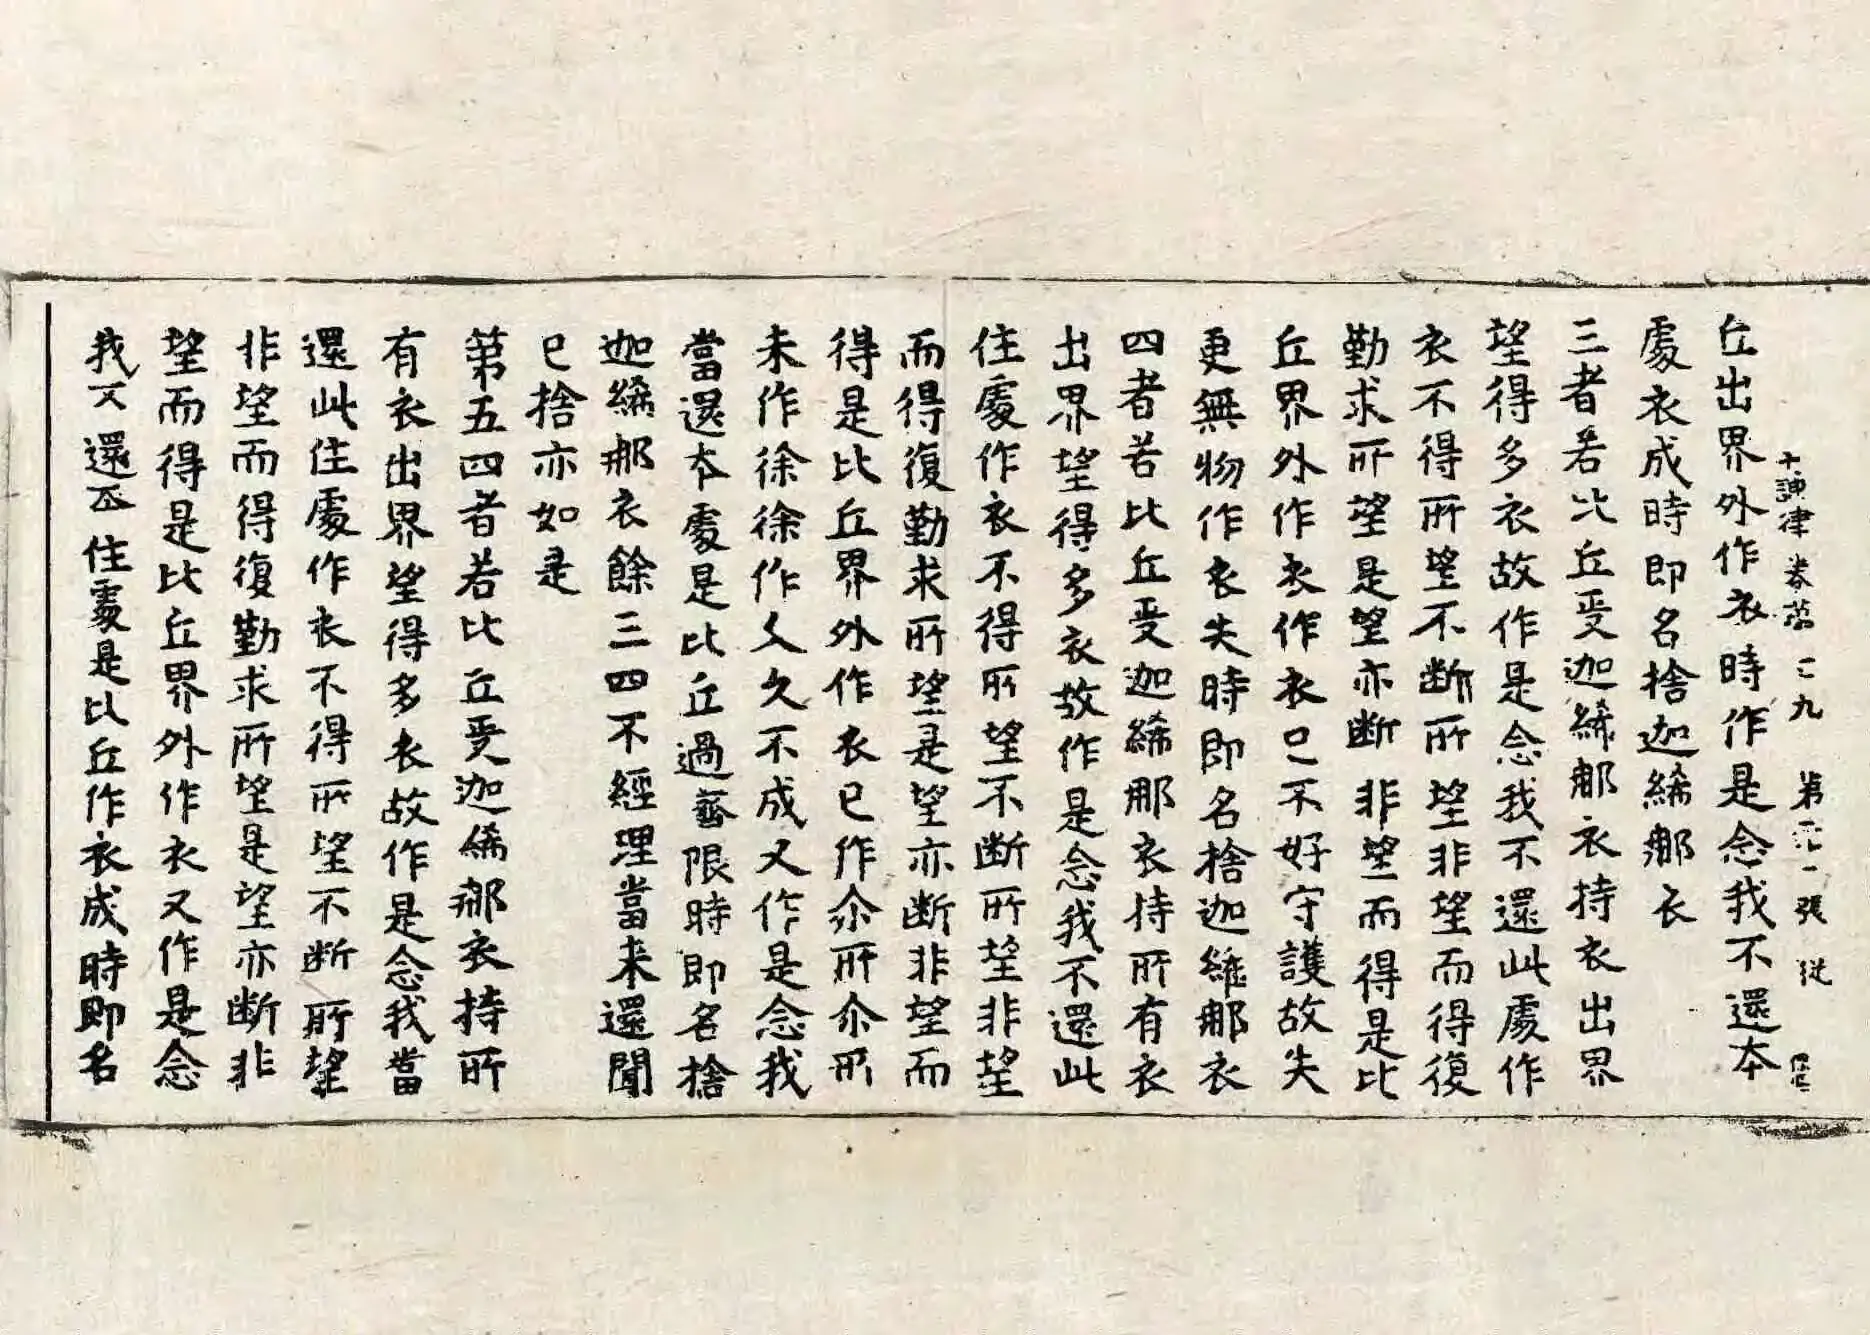 十誦律卷苐二九 苐二一張 從
丘出界外作衣時作是念我不還本
處衣成時即名捨迦絺郍衣
三者若比丘受迦絺郍衣持衣出界
望得多衣故作是念我不還此處作
衣不得所望不断所望非望而得復
勤求所望是望亦断非望而得是比
丘界外作衣作衣已不好守護故失
更無物作衣失時即名捨迦絺郍衣
四者若比丘受迦絺郍衣持所有衣
出界望得多衣故作是念我不還此
住處作衣不得所望不断所望非望
而得復勤求所望是望亦断非望而
得是比丘界外作衣已作尒所尒所
未作徐徐作久久不成又作是念我
當還本處是比丘過齊限時即名捨
迦絺郍衣餘三四不經理當来還聞
已捨亦如是
苐五四者若比丘受迦絺郍衣持所
有衣出界望得多衣故作是念我當
還此住處作衣不得所望不断所望
非望而得復勤求所望是望亦断非
望而得是比丘界外作衣又作是念
我不還本住處是比丘作衣成時即名